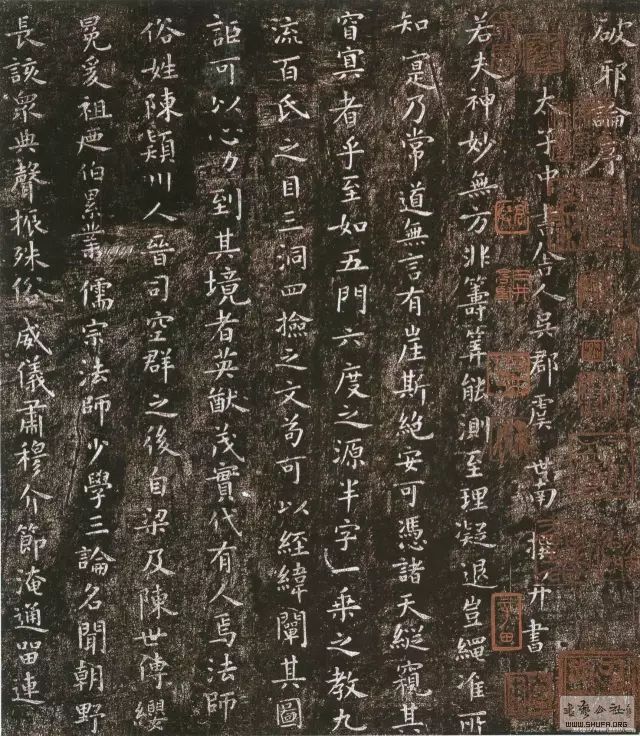 破邪論序
太子中書舍人吳郡虞世南撰并書
若夫神妙無方非籌筭能測至理凝邈豈繩准所
知寔乃常道無言有崖斯絕安可憑諸天縱窺其
窅冥者乎至如五門六度之源半字一乘之教九
流百氏之目三洞四撿之文苟可以經緯闡其圖
詎可以心力到其境者英猷茂實代有人焉法師
俗姓陳潁川人晉司空群之後自梁及陳世傳纓
冕爰祖及伯累業儒宗法師少學三論名聞朝野
長該眾典聲振殊俗威儀肅穆介節淹通留連
WWW.SHUFA.ORG